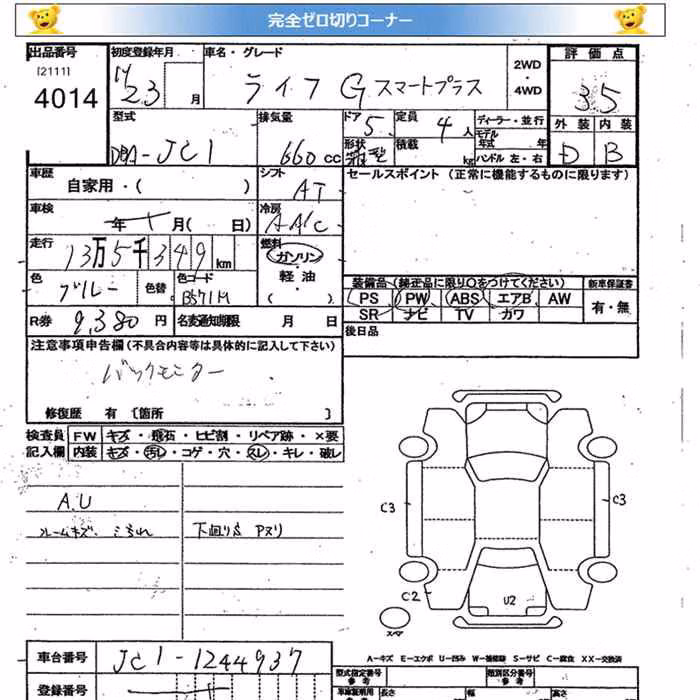 完全ゼロ切りコーナー
出品番号
[2111]
4014
初度登録年月
H23 月
車名・グレード
ライフ G スマートプラス
2WD
・
4WD
評価点
3.5
外装 内装
D B
型式
DBA-JC1
排気量
660 cc
ドア 5
形状 箱型
定員 4 人
積載 kg
ディーラー・並行
モデル年式 年
ハンドル 左・右
車歴
自家用・( )
シフト
AT
セールスポイント (正常に機能するものに限ります)
車検
年 月( 日)
冷房
AAC
走行
13万5千349 km
燃料
ガソリン
・
軽油
( )
色
ブルー
色替
色コード
B571M
装備品(純正品に限り○をつけてください) 新車保証書
PS PW ABS エアB AW 有・無
SR ナビ TV カワ
R券 9,380円 名変通知期限 月 日
後日品
注意事項申告欄(不具合内容等は具体的に記入して下さい)
バックモニター
修復歴 有 〔箇所 〕
検査員 FW キズ・飛石・ヒビ割・リペア跡・×要
記入欄 内装 キズ・汚れ・コゲ・穴・スレ・キレ・破レ
A.U
ルームキズ、こすれ 下廻りS Pヌリ
C3 C3
C2 U2
スペア
車台番号 JC1-1244937
A-キズ E-エクボ U-凹み W-補修跡 S-サビ C-腐食 XX-交換済
登録番号
型式指定番号 参考
類別区分番号 参考
長さ 幅 高さ